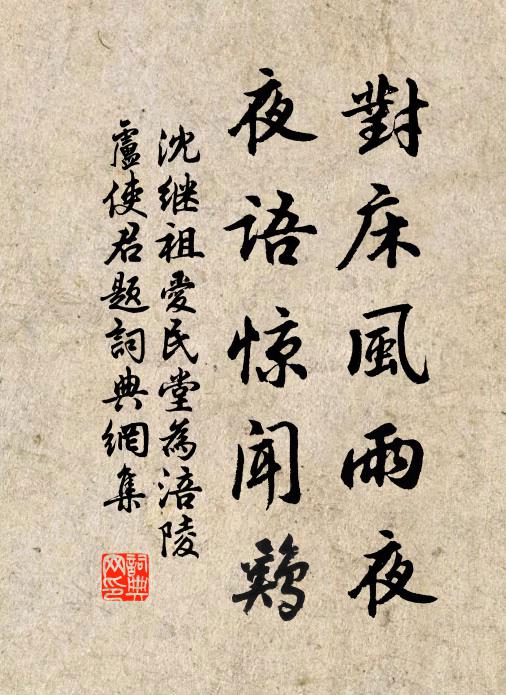 對床風雨夜
夜語惊闻鷄
沈继祖爱民堂為涪陵
盧使君题詞典網集
詞典网印